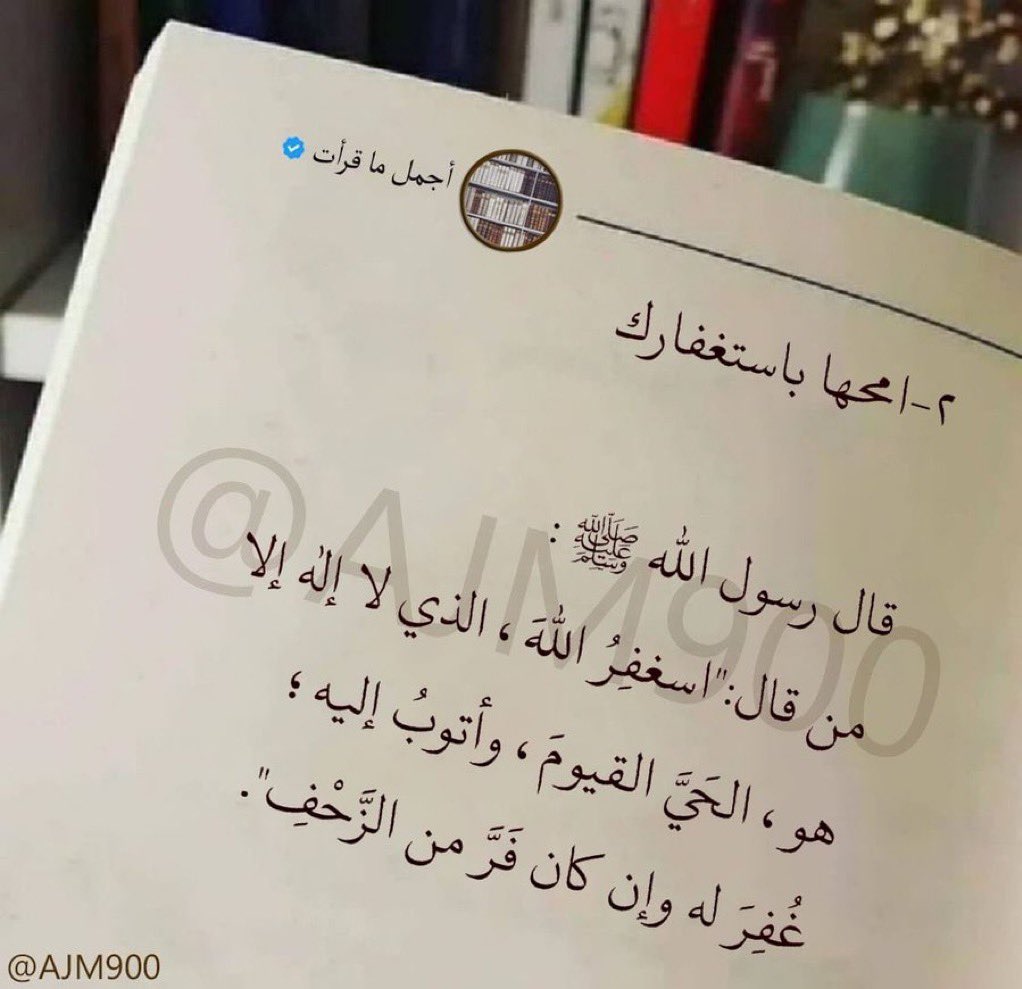 أجمل ما قرأت
٢-امحها باستغفارك
قال رسول الله ﷺ :
من قال:"اسغفِرُ اللهَ ، الذي لا إلٰه إلا
هو ، الحَيَّ القيومَ ، وأتوبُ إليه ؛
غُفِرَ له وإن كان فَرَّ من الزَّحْفِ".
@AJM900
@AJM900